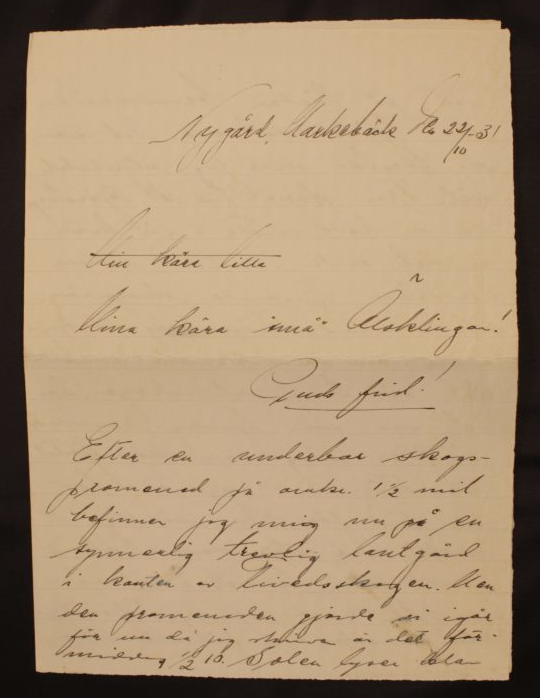 Nygård, Markebäck den 22/10-31
Min kära lilla
Mina kära små Älsklingar!
Guds frid!
Efter en underbar skogs-
promenad på omkr. 1½ mil
befinner jag mig nu på en
synnerlig trevlig lantgård
i kanten av Tivedsskogen. Men
den promenaden gjorde vi igår
för nu då jag skriver är det för-
middag ½ 10. Solen lyser